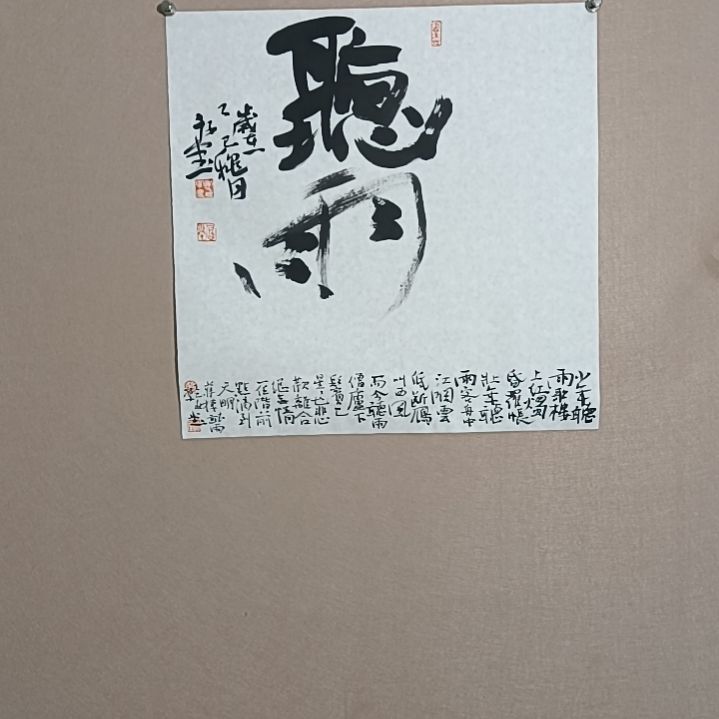 聽
雨
歲在
乙巳穐日
少年聽
雨歌樓
上紅燭
昏羅帳
壯年聽
雨客舟中
江闊雲
低斷雁
叫西風
而今聽雨
僧廬下
鬢已
星〻也悲
歡離合
總無情
一任階前
點滴到
天明
蔣捷聽雨